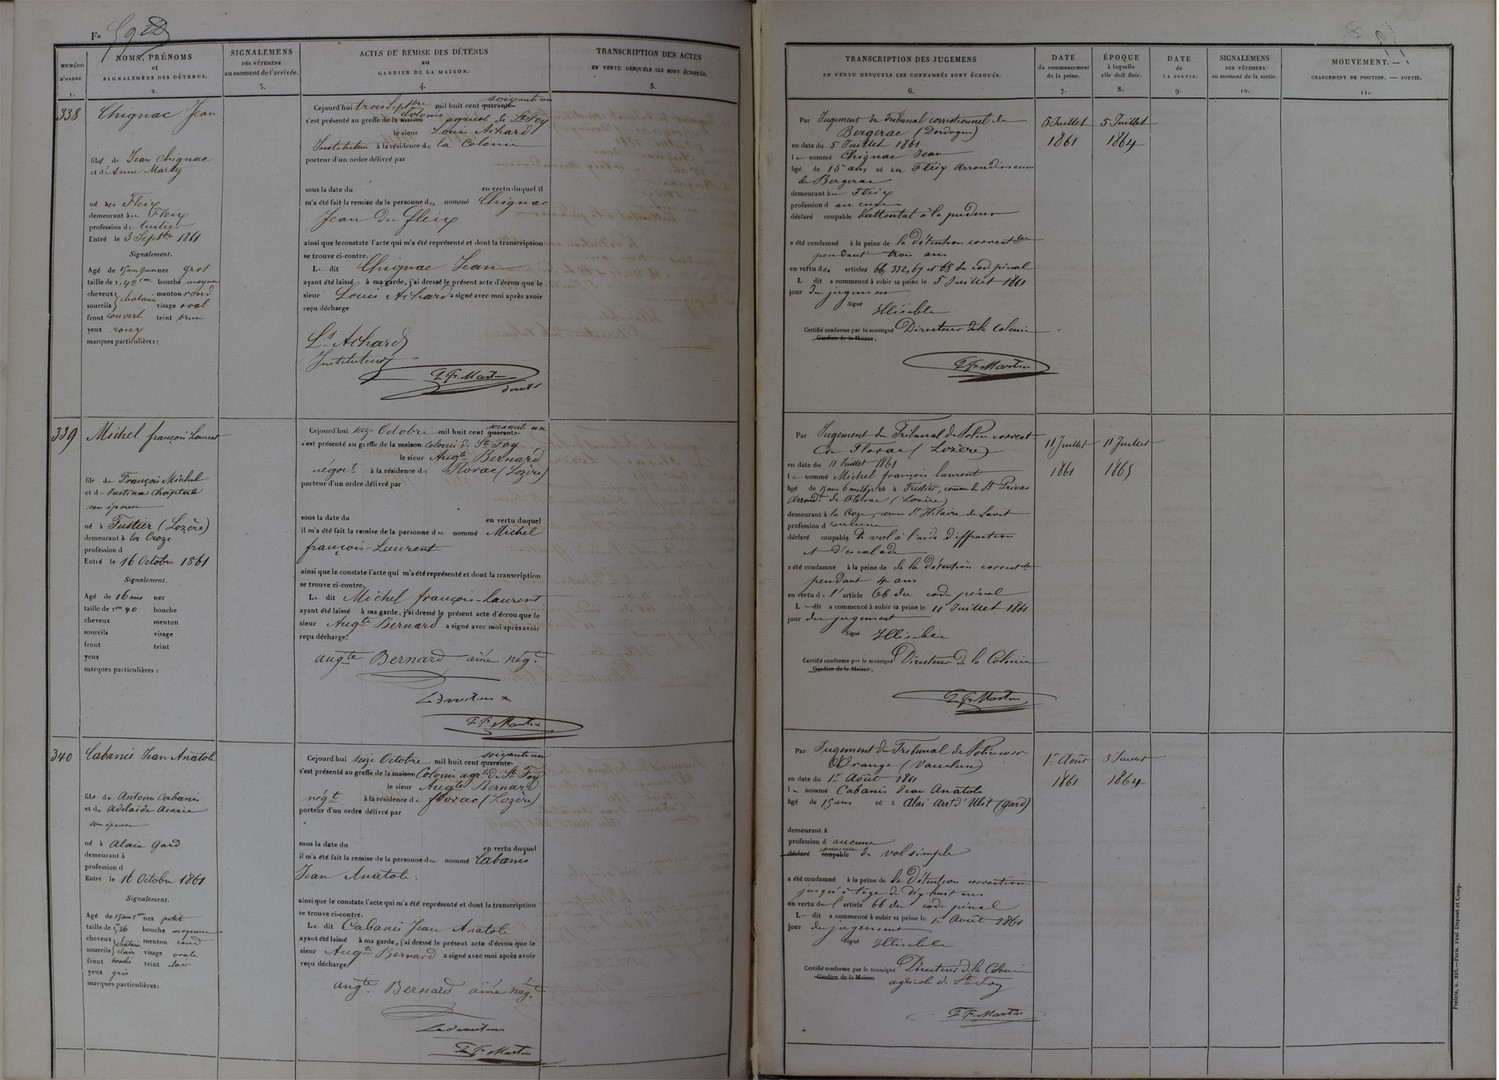 F°
NUMÉRO D'ORDRE
NOMS, PRÉNOMS
et
SIGNALEMENS DES DÉTENUS.
SIGNALEMENS
DES VÊTEMENS
au moment de l'arrivée.
ACTES DE REMISE DES DÉTENUS
AU
GARDIEN DE LA MAISON.
TRANSCRIPTION DES ACTES
EN VERTU DESQUELS ILS SONT ÉCROUÉS.
1.
2.
3.
4.
5.
338
Chignac Jean
fils de Jean Chignac
et d'Anne Marty
né à Fleix
demeurant à Fleix
profession de
Entré le 3 Sept.bre 1861
Signalement.
Agé de 15 ans nez gros
taille de 1, 42 cm bouche moyenne
cheveux châtain menton rond
sourcils visage oval
front couvert teint brun
yeux roux
marques particulières :
Cejourd'hui trois Septbre mil huit cent quarante soixante un
s'est présenté au greffe de la maison Colonie agricole de Ste Foy
le sieur Louis Achard
Instituteur à la résidence de la Colonie
porteur d'un ordre délivré par
sous la date du en vertu duquel il
m'a été fait la remise de la personne du nommé Chignac
Jean du Fleix
ainsi que le constate l'acte qui m'a été représenté et dont la transcription
se trouve ci-contre.
Le dit Chignac Jean
ayant été laissé à ma garde, j'ai dressé le présent acte d'écrou que le
sieur Louis Achard a signé avec moi après avoir
reçu décharge
Ls Achard
Instituteur
E. Fr. Martin
339
Michel françois Laurent
fils de François Michel
et de Justine Chapitel
son épouse
né à Fustier (Lozère)
demeurant à la Croze
profession d
Entré le 16 Octobre 1861
Signalement.
Agé de 16 ans nez
taille de 1m 40 bouche
cheveux menton
sourcils visage
front teint
yeux
marques particulières :
Cejourd'hui seize Octobre mil huit cent quarante soixante un
s'est présenté au greffe de la maison Colonie de Ste Foy
le sieur Augte Bernard
négoct à la résidence de Florac (Lozère)
porteur d'un ordre délivré par
sous la date du en vertu duquel
il m'a été fait la remise de la personne du nommé Michel
françois-Laurent
ainsi que le constate l'acte qui m'a été représenté et dont la transcription
se trouve ci-contre.
Le dit Michel françois-Laurent
ayant été laissé à ma garde, j'ai dressé le présent acte d'écrou que le
sieur Augte Bernard a signé avec moi après avoir
reçu décharge.
augte Bernard aîné négt
Le Directeur
E. F. Martin
340
Cabanis Jean Anatole
fils de Antoine Cabanis
et de Adelaïde
son épouse
né à Alais Gard
demeurant à
profession d
Entré le 16 Octobre 1861
Signalement.
Agé de 15 ans nez petit
taille de 1,36 bouche moyenne
cheveux châtain menton rond
sourcils clair visage ovale
front teint clair
yeux gris
marques particulières :
Cejourd'hui seize Octobre mil huit cent quarante soixante un
s'est présenté au greffe de la maison Colonie agrle de Ste Foy
le sieur Augte Bernard
négt à la résidence de florac (Lozère)
porteur d'un ordre délivré par
sous la date du en vertu duquel
il m'a été fait la remise de la personne du nommé Cabanis
Jean Anatole.
ainsi que le constate l'acte qui m'a été représenté et dont la transcription
se trouve ci-contre.
Le dit Cabanis Jean Anatole
ayant été laissé à ma garde, j'ai dressé le présent acte d'écrou que le
sieur Augte Bernard a signé avec moi après avoir
reçu décharge.
augte Bernard aîné négt
Le directeur
E. F. Martin
TRANSCRIPTION DES JUGEMENS
EN VERTU DESQUELS LES CONDAMNÉS SONT ÉCROUÉS.
DATE
du commencement
de la peine.
ÉPOQUE
à laquelle
elle doit finir.
DATE
de
LA SORTIE.
SIGNALEMENS
DES VÊTEMENS
au moment de la sortie.
MOUVEMENT. —
CHANGEMENT DE POSITION. — SORTIE.
6.
7.
8.
9.
10.
11.
Par Jugement du Tribunal correctionnel de
Bergerac (Dordogne)
en date du 5 Juillet 1861
le nommé Chignac Jean
âgé de 15 ans né au Fleix Arrondissement
de Bergerac
demeurant au Fleix
profession d
déclaré coupable d'attentat à la pudeur
a été condamné à la peine de la détention correctelle
pendant trois ans
en vertu des articles 66, 332, 69 et 68 du code pénal
L dit a commencé à subir sa peine le 5 Juillet 1861
jour du jugement
Signé
Illisible
Certifié conforme par le soussigné Directeur de la Colonie
Gardien de la Maison.
E. Fr. Martin
5 Juillet
1861
5 Juillet
1864
Par Jugement du Tribunal de Police correct
de Florac (Lozère)
en date du 11 Juillet 1861
le nommé Michel françois laurent
âgé de 15 ans 6 mois né à Fustier, comm de St Privas
Arrondt de Florac (Lozère)
demeurant à la Croze, comm St Hilaire de Lavit
profession d'aucune
déclaré coupable de vol à l'aide d'effraction
et d'escalade
a été condamné à la peine de de la Détention correctelle
pendant 4 ans
en vertu de l' article 66 du code pénal
L dit a commencé à subir sa peine le 11 Juillet 1861
jour du jugement
Signé Illisible
Certifié conforme par le soussigné Directeur de la Colonie
Gardien de la Maison.
E. Fr. Martin
11 Juillet
1861
11 Juillet
1865
Par Jugement du Tribunal de Police cor
d'Orange (Vaucluse)
en date du 1er Août 1861
le nommé Cabanis Jean Anatole
âgé de 15 ans né à Alais Arrt d'Alais (gard)
demeurant à
profession d aucune
déclaré coupable de vol simple
a été condamné à la peine de la Détention correction
jusqu'à l'age de Dix huit ans
en vertu de l' article 66 du code pénal
L dit a commencé à subir sa peine le 1er Août 1861
jour du jugement
Signé Illisible
Certifié conforme par le soussigné Directeur de la Colonie
Gardien de la Maison
agricole de Ste Foy
E. F. Martin
1er Août
1861
1864